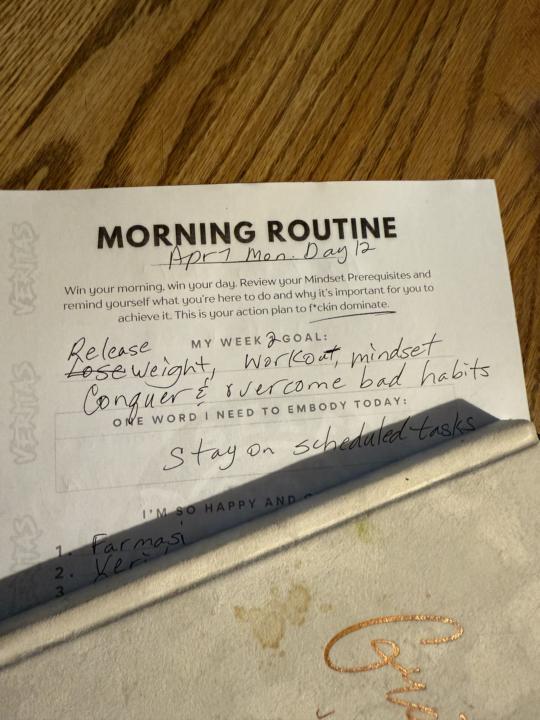 MORNING ROUTINE
Apr 7 Mon. Day 12
Win your morning, win your day. Review your Mindset Prerequisites and
remind yourself what you're here to do and why it's important for you to
achieve it. This is your action plan to f*ckin dominate.
MY WEEK 2 GOAL:
Release
Lose weight, workout, mindset
Conquer & overcome bad habits
ONE WORD I NEED TO EMBODY TODAY:
Stay on scheduled tasks
I'M SO HAPPY AND
1. Farmasi
2.
3
VERITAS
VERITAS
VERITAS